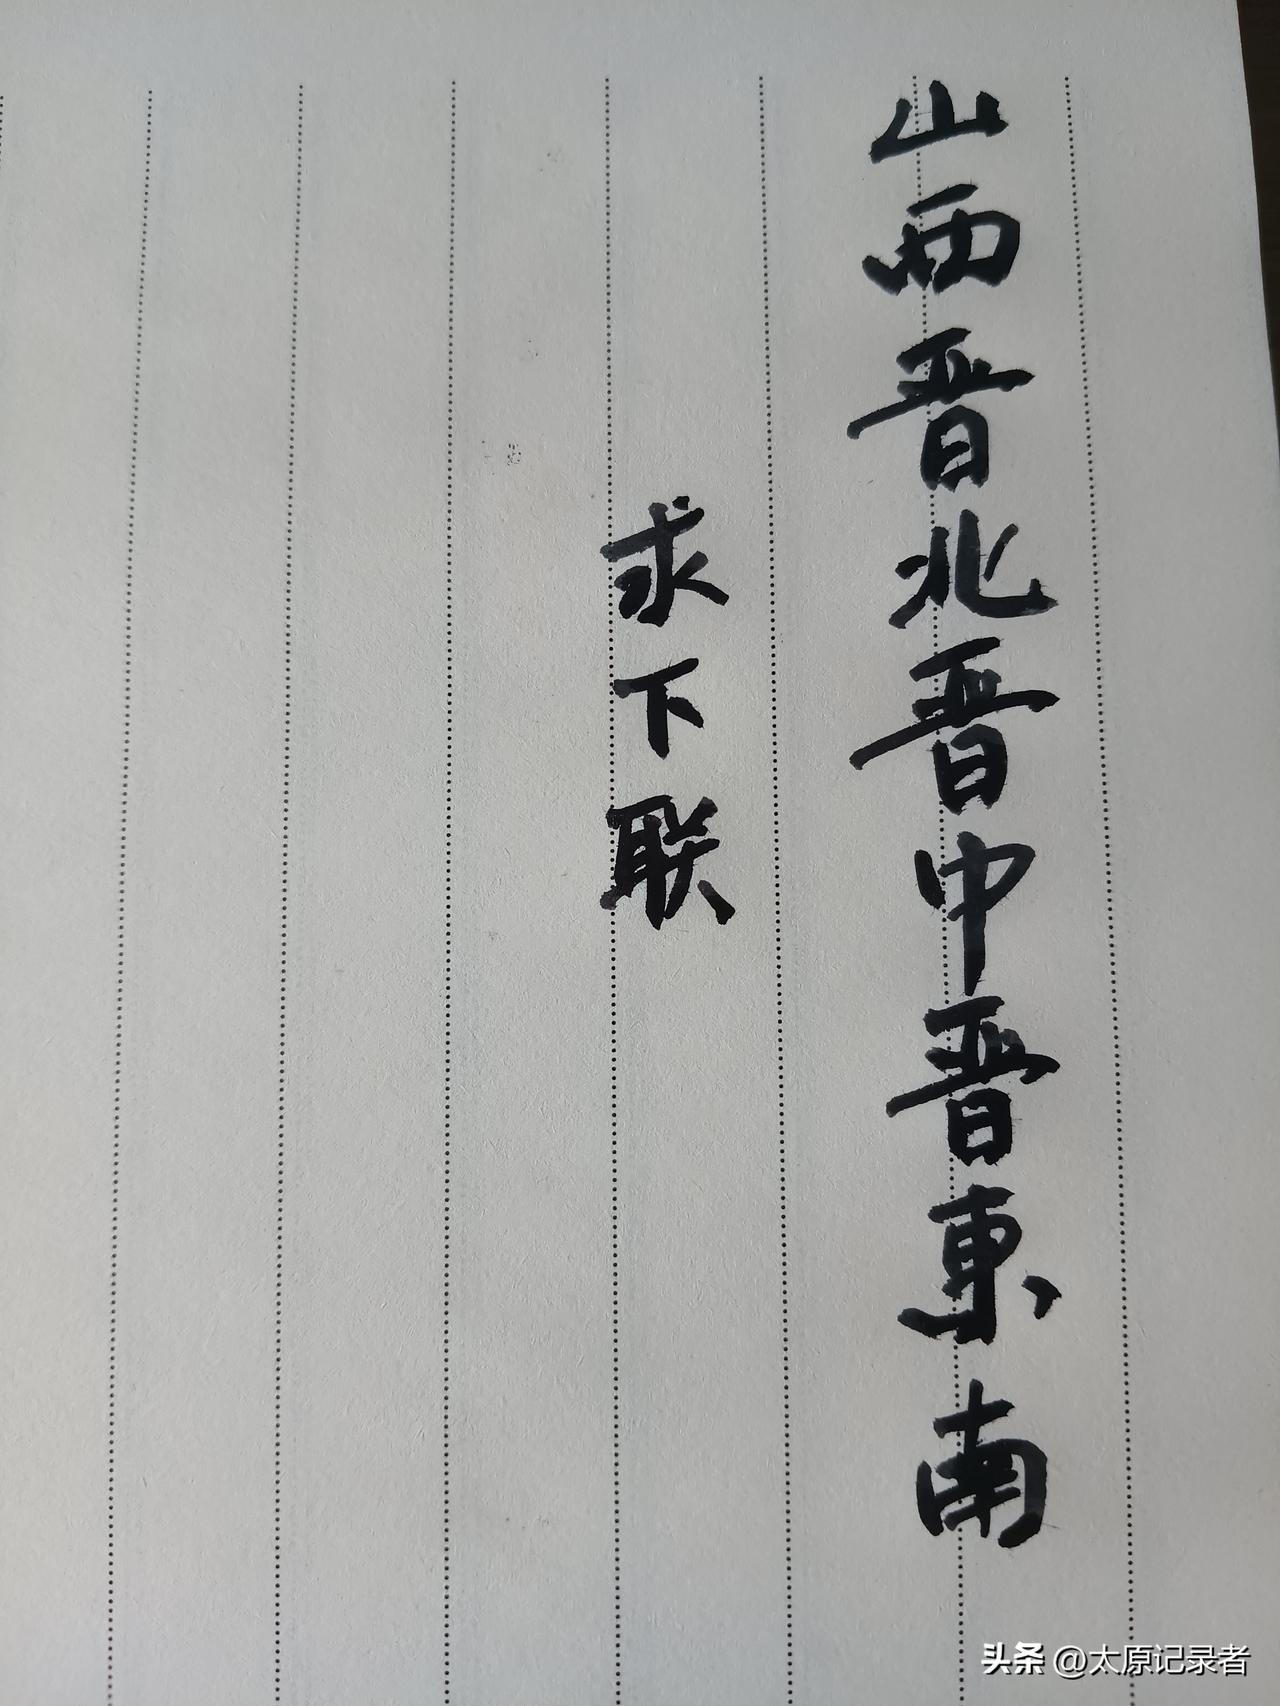 山西晋北晋中晋東南
求下联
头条 @太原记录者